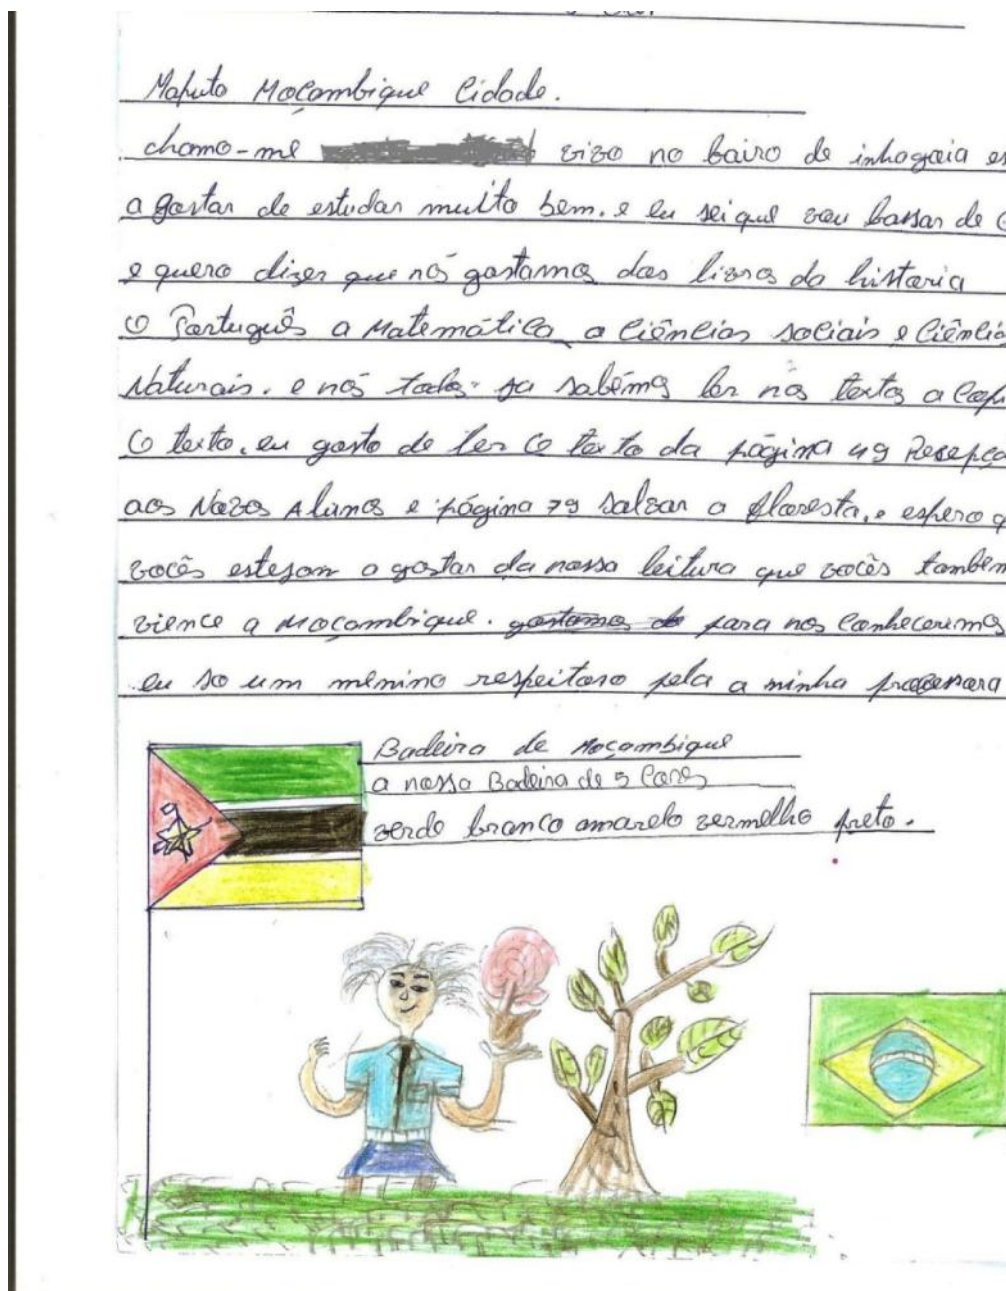 Maputo Moçambique Cidade.
chamo-me vivo no bairo de inhagoia es
a gostar de estudar muito bem. e eu sei que vou bassar de
e quero dizer que nós gostamos dos livros da historia
O Português a Matemática a Ciências sociais e Ciências
Naturais. e nós todos ja sabémos ler nos textos a
O texto. eu gosto de ler O texto da página 49
aos Novos Alunos e página 79 Salvar a floresta. e espero q
vocês estejam a gostar da nossa leitura que vocês também
vience a Moçambique. gostamos de para nos conhecerimos
eu so um menino respeitoso pela a minha
Badeira de Moçambique
a nossa Badeira de 5 Cores
verde branco amarelo vermelho preto.